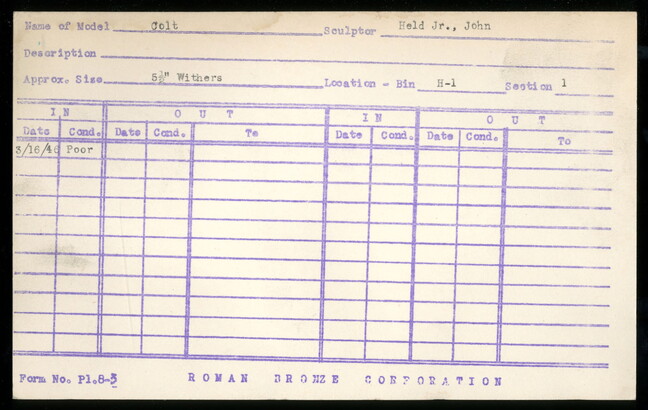 Name of Model Colt Sculptor Held Jr., John
Description
Approx. Size 5½" Withers Location - Bin H-1 Section 1
IN OUT IN OUT
Date Cond. Date Cond. To Date Cond. Date Cond. To
3/16/46 Poor
Form No. Pl.8-3 ROMAN BRONZE CORPORATION